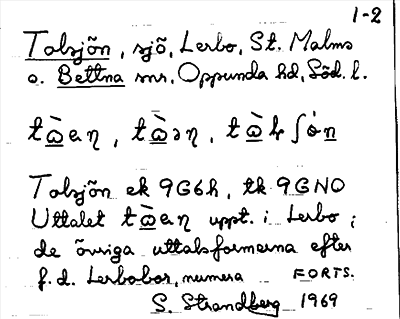 1-2
Tolsjön, sjö, Lerbo, St. Malms
o. Bettna snr, Oppunda hd, Söd. l.
Tolsjön ek 9G6h, tk 9GNO
Uttalet uppt. i Lerbo;
de övriga uttalsformerna efter
f.d. Lerbobor, numera FORTS.
S. Strandberg 1969